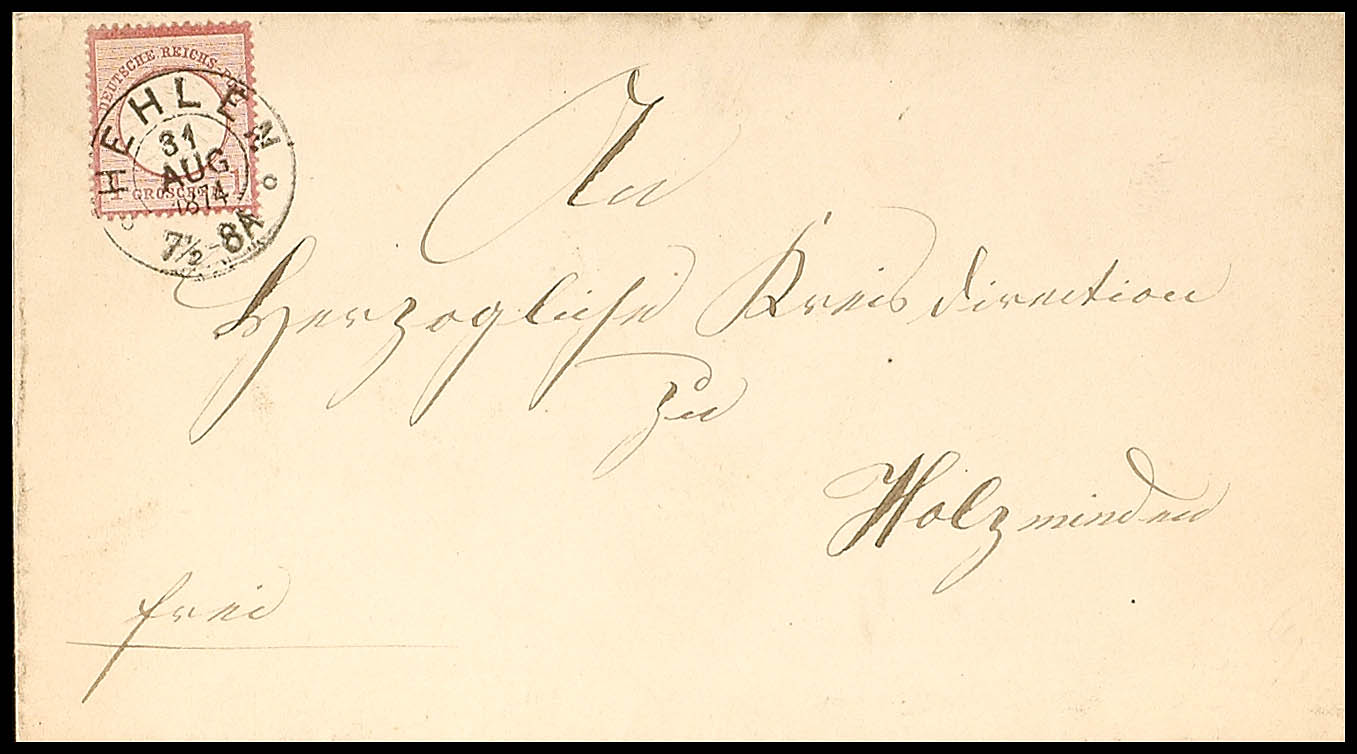 DEUTSCHE REICHS-PO
1 GROSCHEN 1
HEHLEN
31
AUG
1874
7½-8A
An
Herzogliche Kreisdirection
zu
Holzminden
frei